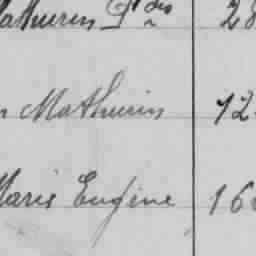 Mathurin P. des 28
n Mathurin 12
Marie Eugène 16